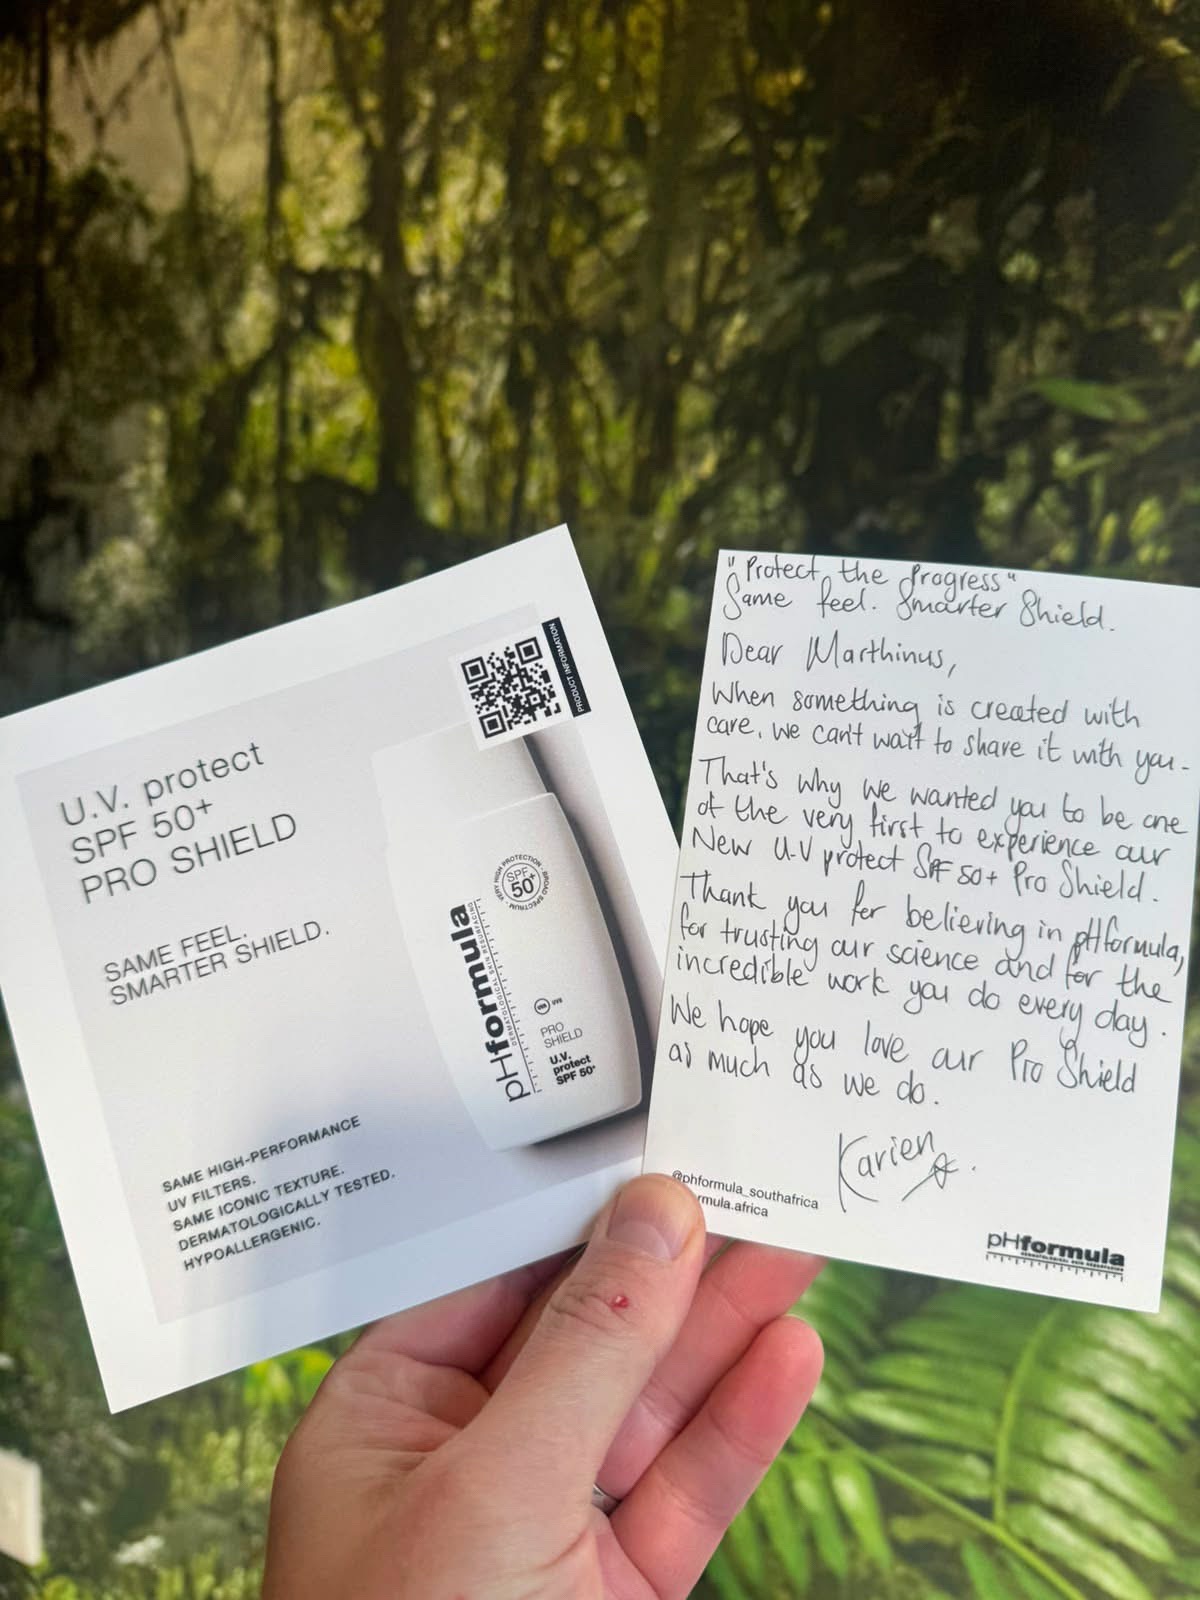 U.V. protect
SPF 50+
PRO SHIELD
SAME FEEL.
SMARTER SHIELD.
SAME HIGH-PERFORMANCE
UV FILTERS.
SAME ICONIC TEXTURE.
DERMATOLOGICALLY TESTED.
HYPOALLERGENIC.
PRODUCT INFORMATION
VERY HIGH PROTECTION · BROAD SPECTRUM
SPF
50+
pHformula
DERMATOLOGICAL SKIN RESURFACING
UVA UVB
PRO
SHIELD
U.V.
protect
SPF 50+
"Protect the Progress"
Same feel. Smarter Shield.
Dear Marthinus,
When something is created with
care, we can't wait to share it with you-
That's why we wanted you to be one
of the very first to experience our
New U.V protect SPF 50+ Pro Shield.
Thank you for believing in pHformula,
for trusting our science and for the
incredible work you do every day.
We hope you love our Pro Shield
as much as we do.
Karien
@phformula_southafrica
rmula.africa
pHformula
DERMATOLOGICAL SKIN RESURFACING